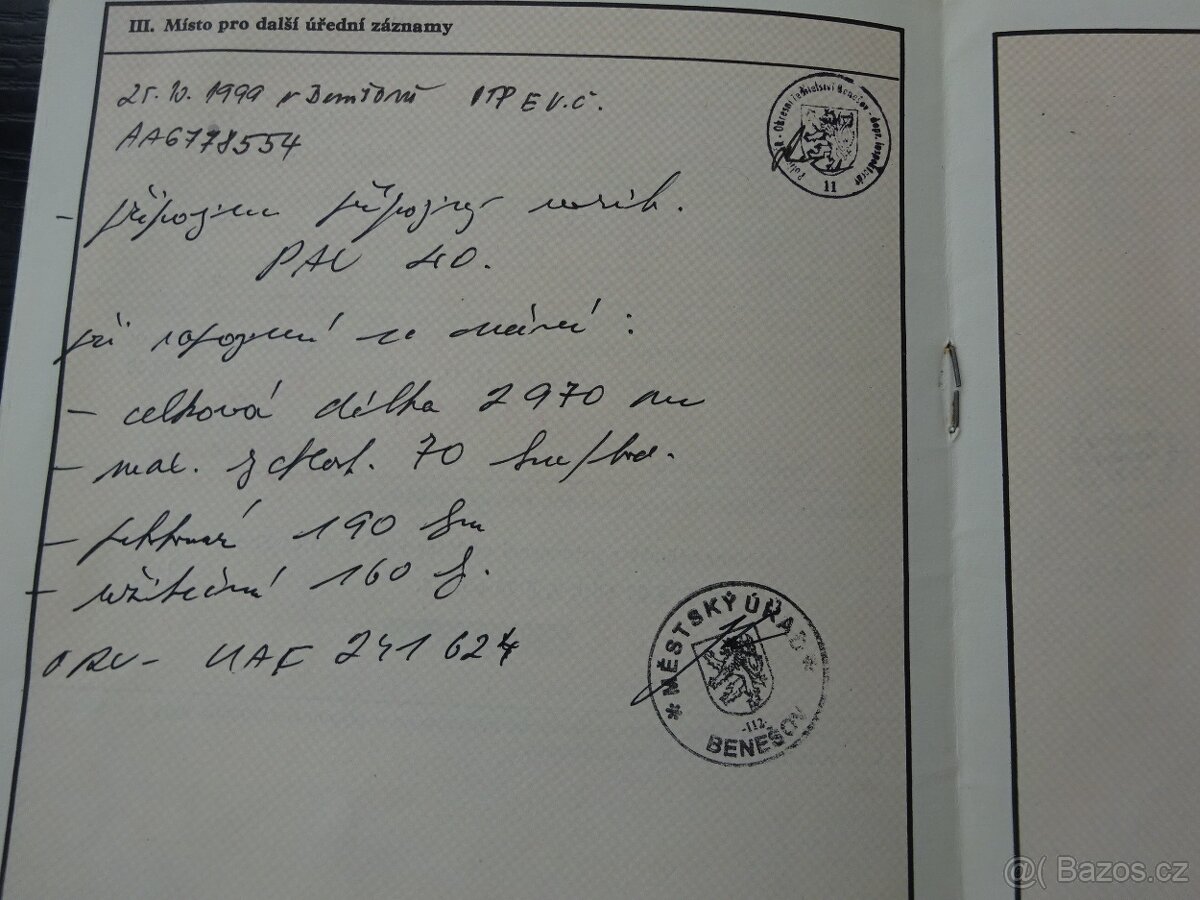 III. Místo pro další úřední záznamy
25. 10. 1999 v Benešově OTP EV.Č.
AA6778554
Okresní ředitelství Benešov - dopr. inspektorát
11
- připojen přípojný vozík.
PAV 40.
při zapojení za :
- celková délka 2970 mm
- max. rychlost. 70 km/hod.
- pohotovost 190 km
- užitečná 160 kg.
ORV - UAF 241 624
* MĚSTSKÝ ÚŘAD *
-112-
BENEŠOV
@( Bazos.cz